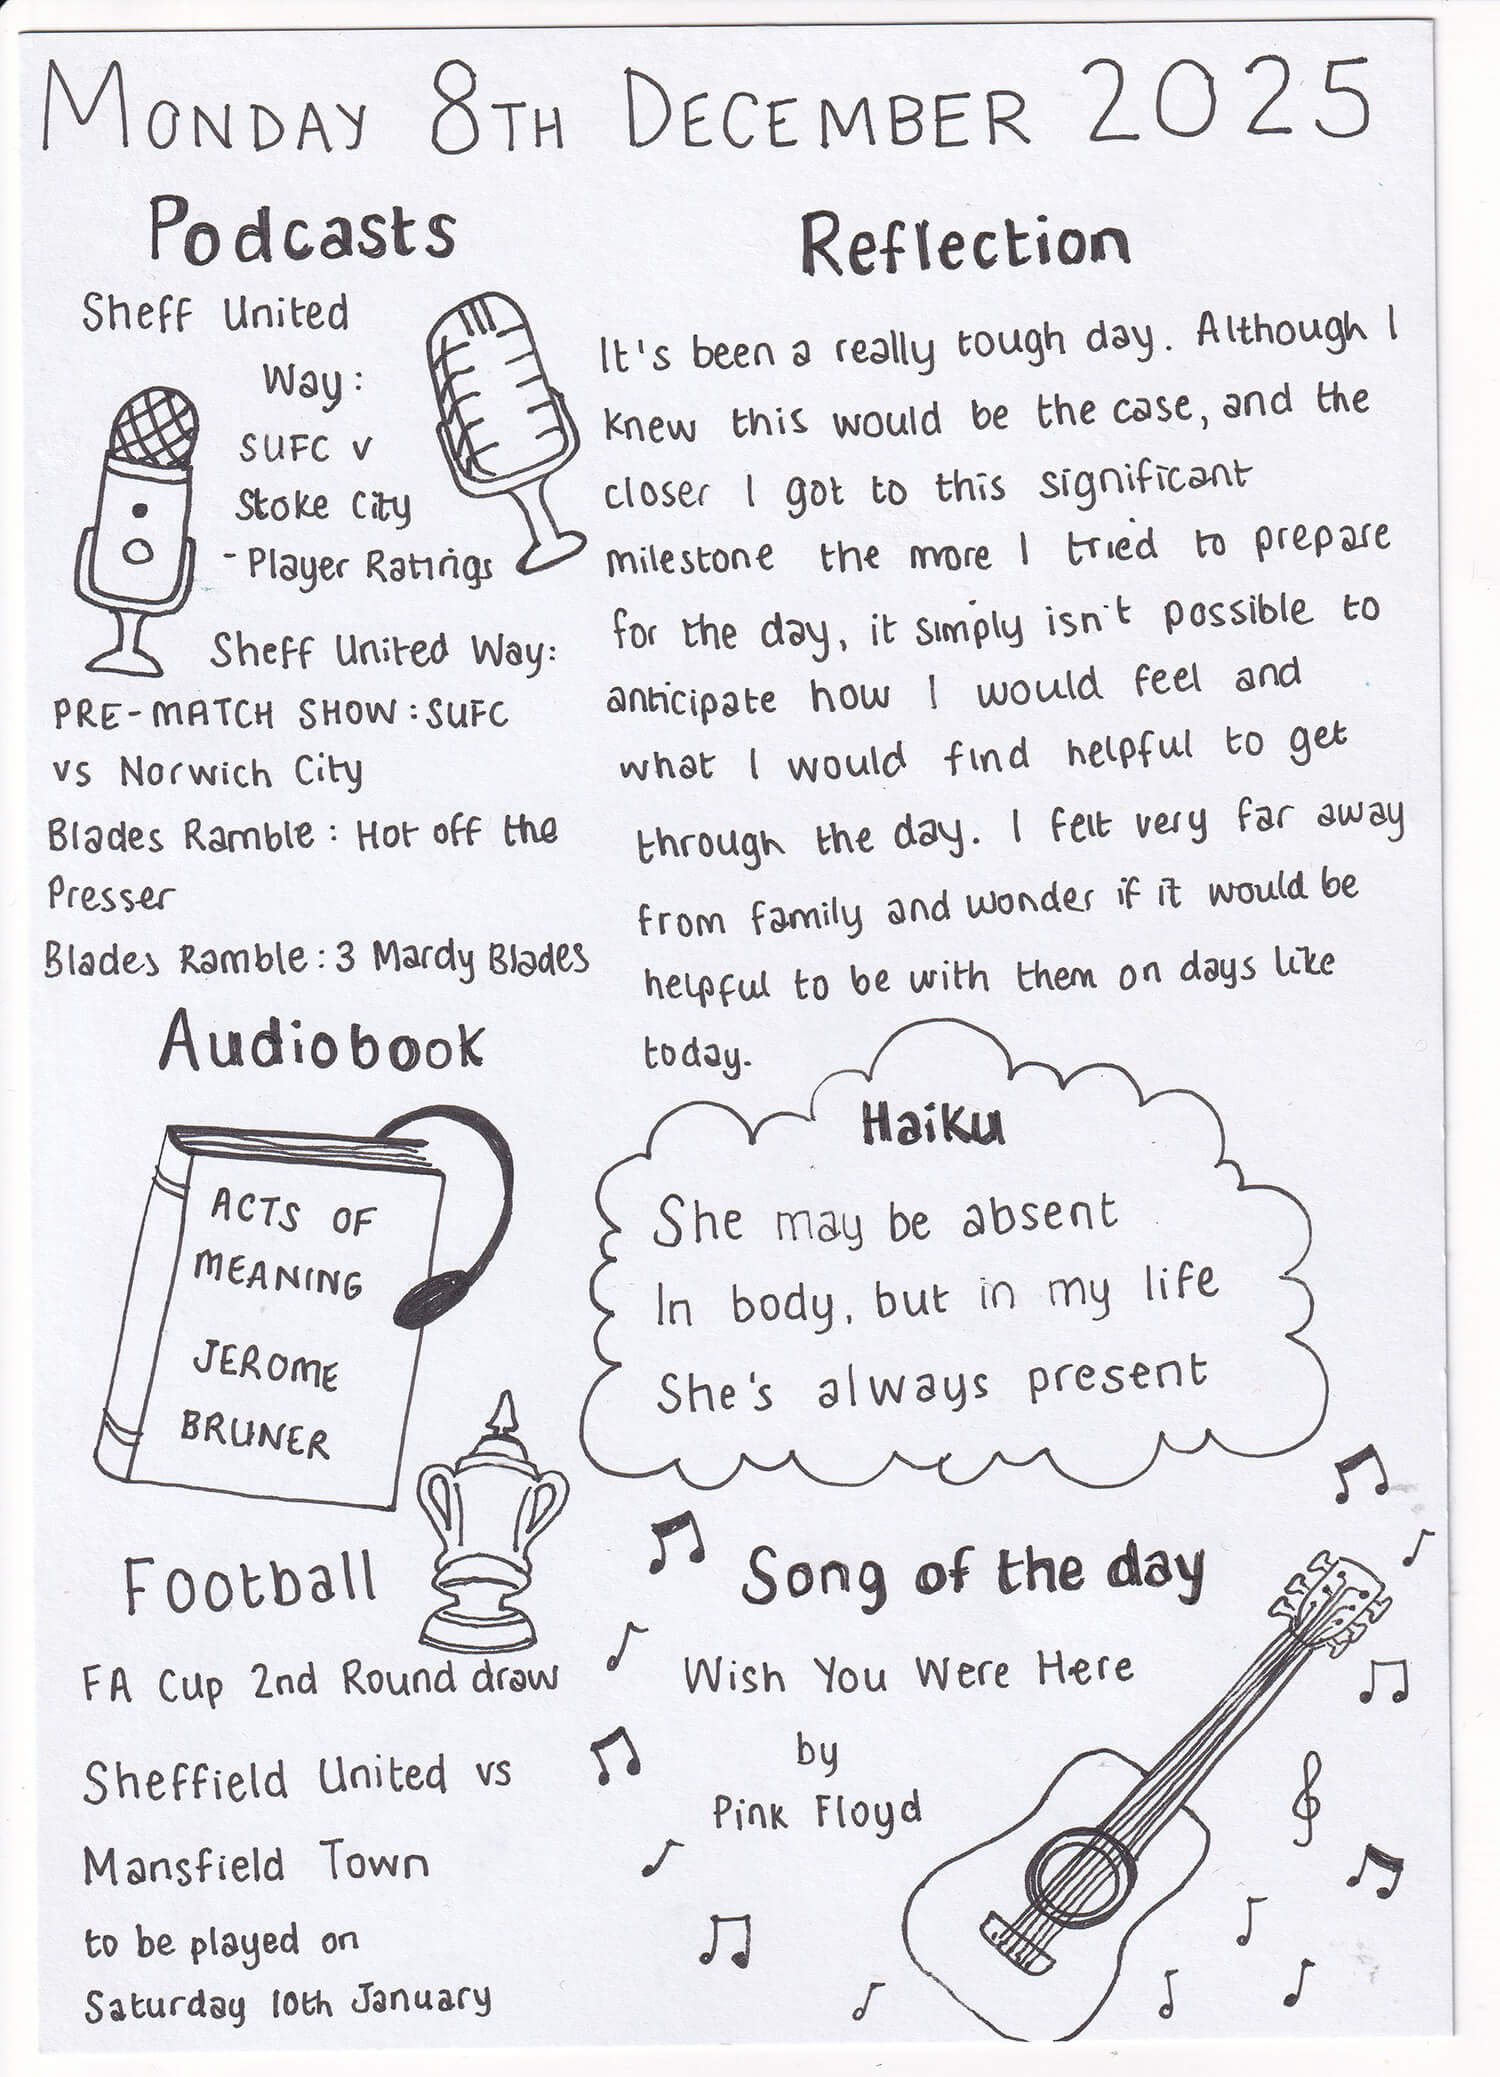 MONDAY 8TH DECEMBER 2025
Podcasts
Sheff United
Way:
SUFC v
Stoke City
- Player Ratings
Sheff United Way:
PRE-MATCH SHOW: SUFC
vs Norwich City
Blades Ramble: Hot off the
Presser
Blades Ramble: 3 Mardy Blades
Audiobook
ACTS OF
MEANING
JEROME
BRUNER
Football
FA Cup 2nd Round draw
Sheffield United vs
Mansfield Town
to be played on
Saturday 10th January
Reflection
It's been a really tough day. Although I
knew this would be the case, and the
closer I got to this significant
milestone the more I tried to prepare
for the day, it simply isn't possible to
anticipate how I would feel and
what I would find helpful to get
through the day. I felt very far away
from family and wonder if it would be
helpful to be with them on days like
today.
Haiku
She may be absent
In body, but in my life
She's always present
Song of the day
Wish You Were Here
by
Pink Floyd